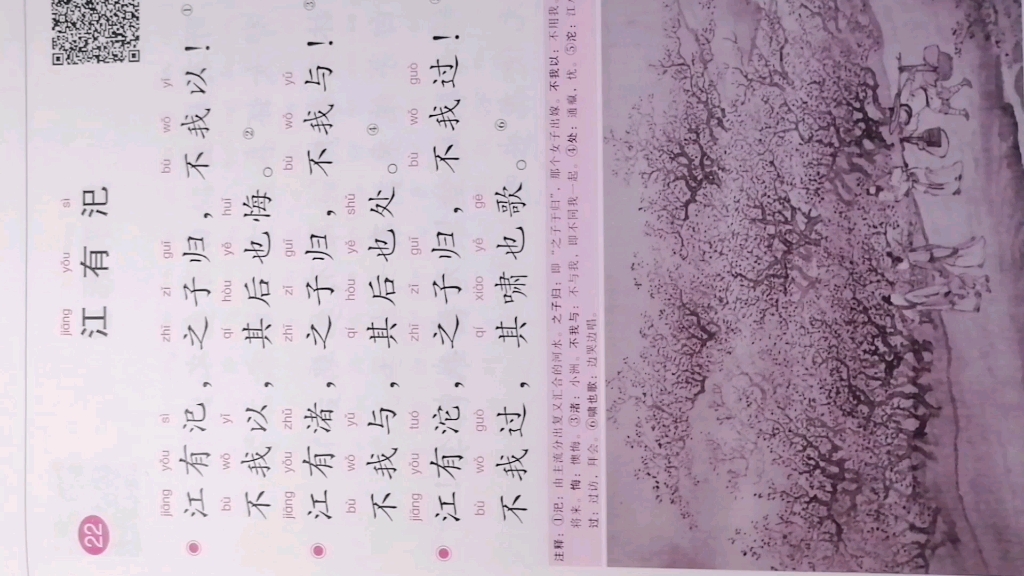 22
jiāng yǒu sì
江有汜
jiāng yǒu sì zhī zǐ guī bù wǒ yǐ
江有汜，之子归，不我以！①
bù wǒ yǐ qí hòu yě huǐ
不我以，其后也悔。②
jiāng yǒu zhǔ zhī zǐ guī bù wǒ yǔ
江有渚，之子归，不我与！③
bù wǒ yǔ qí hòu yě shǔ
不我与，其后也处。④
jiāng yǒu tuó zhī zǐ guī bù wǒ guò
江有沱，之子归，不我过！
bù wǒ guò qí xiào yě gē
不我过，其啸也歌。⑥
注释：①汜：由主流分出复又汇合的河水。之子归：即“之子于归”，那个女子出嫁。不我以：不用我
将来。悔：懊悔。③渚：小洲。不我与：不与我，即不同我一起。④处：通癙，忧。⑤沱：江
过：过访，拜会。⑥啸也歌：边哭边唱。